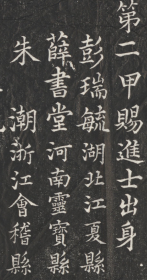 第二甲賜進士出身
彭瑞毓湖北江夏縣
薛書堂河南靈寶縣
朱潮浙江會稽縣